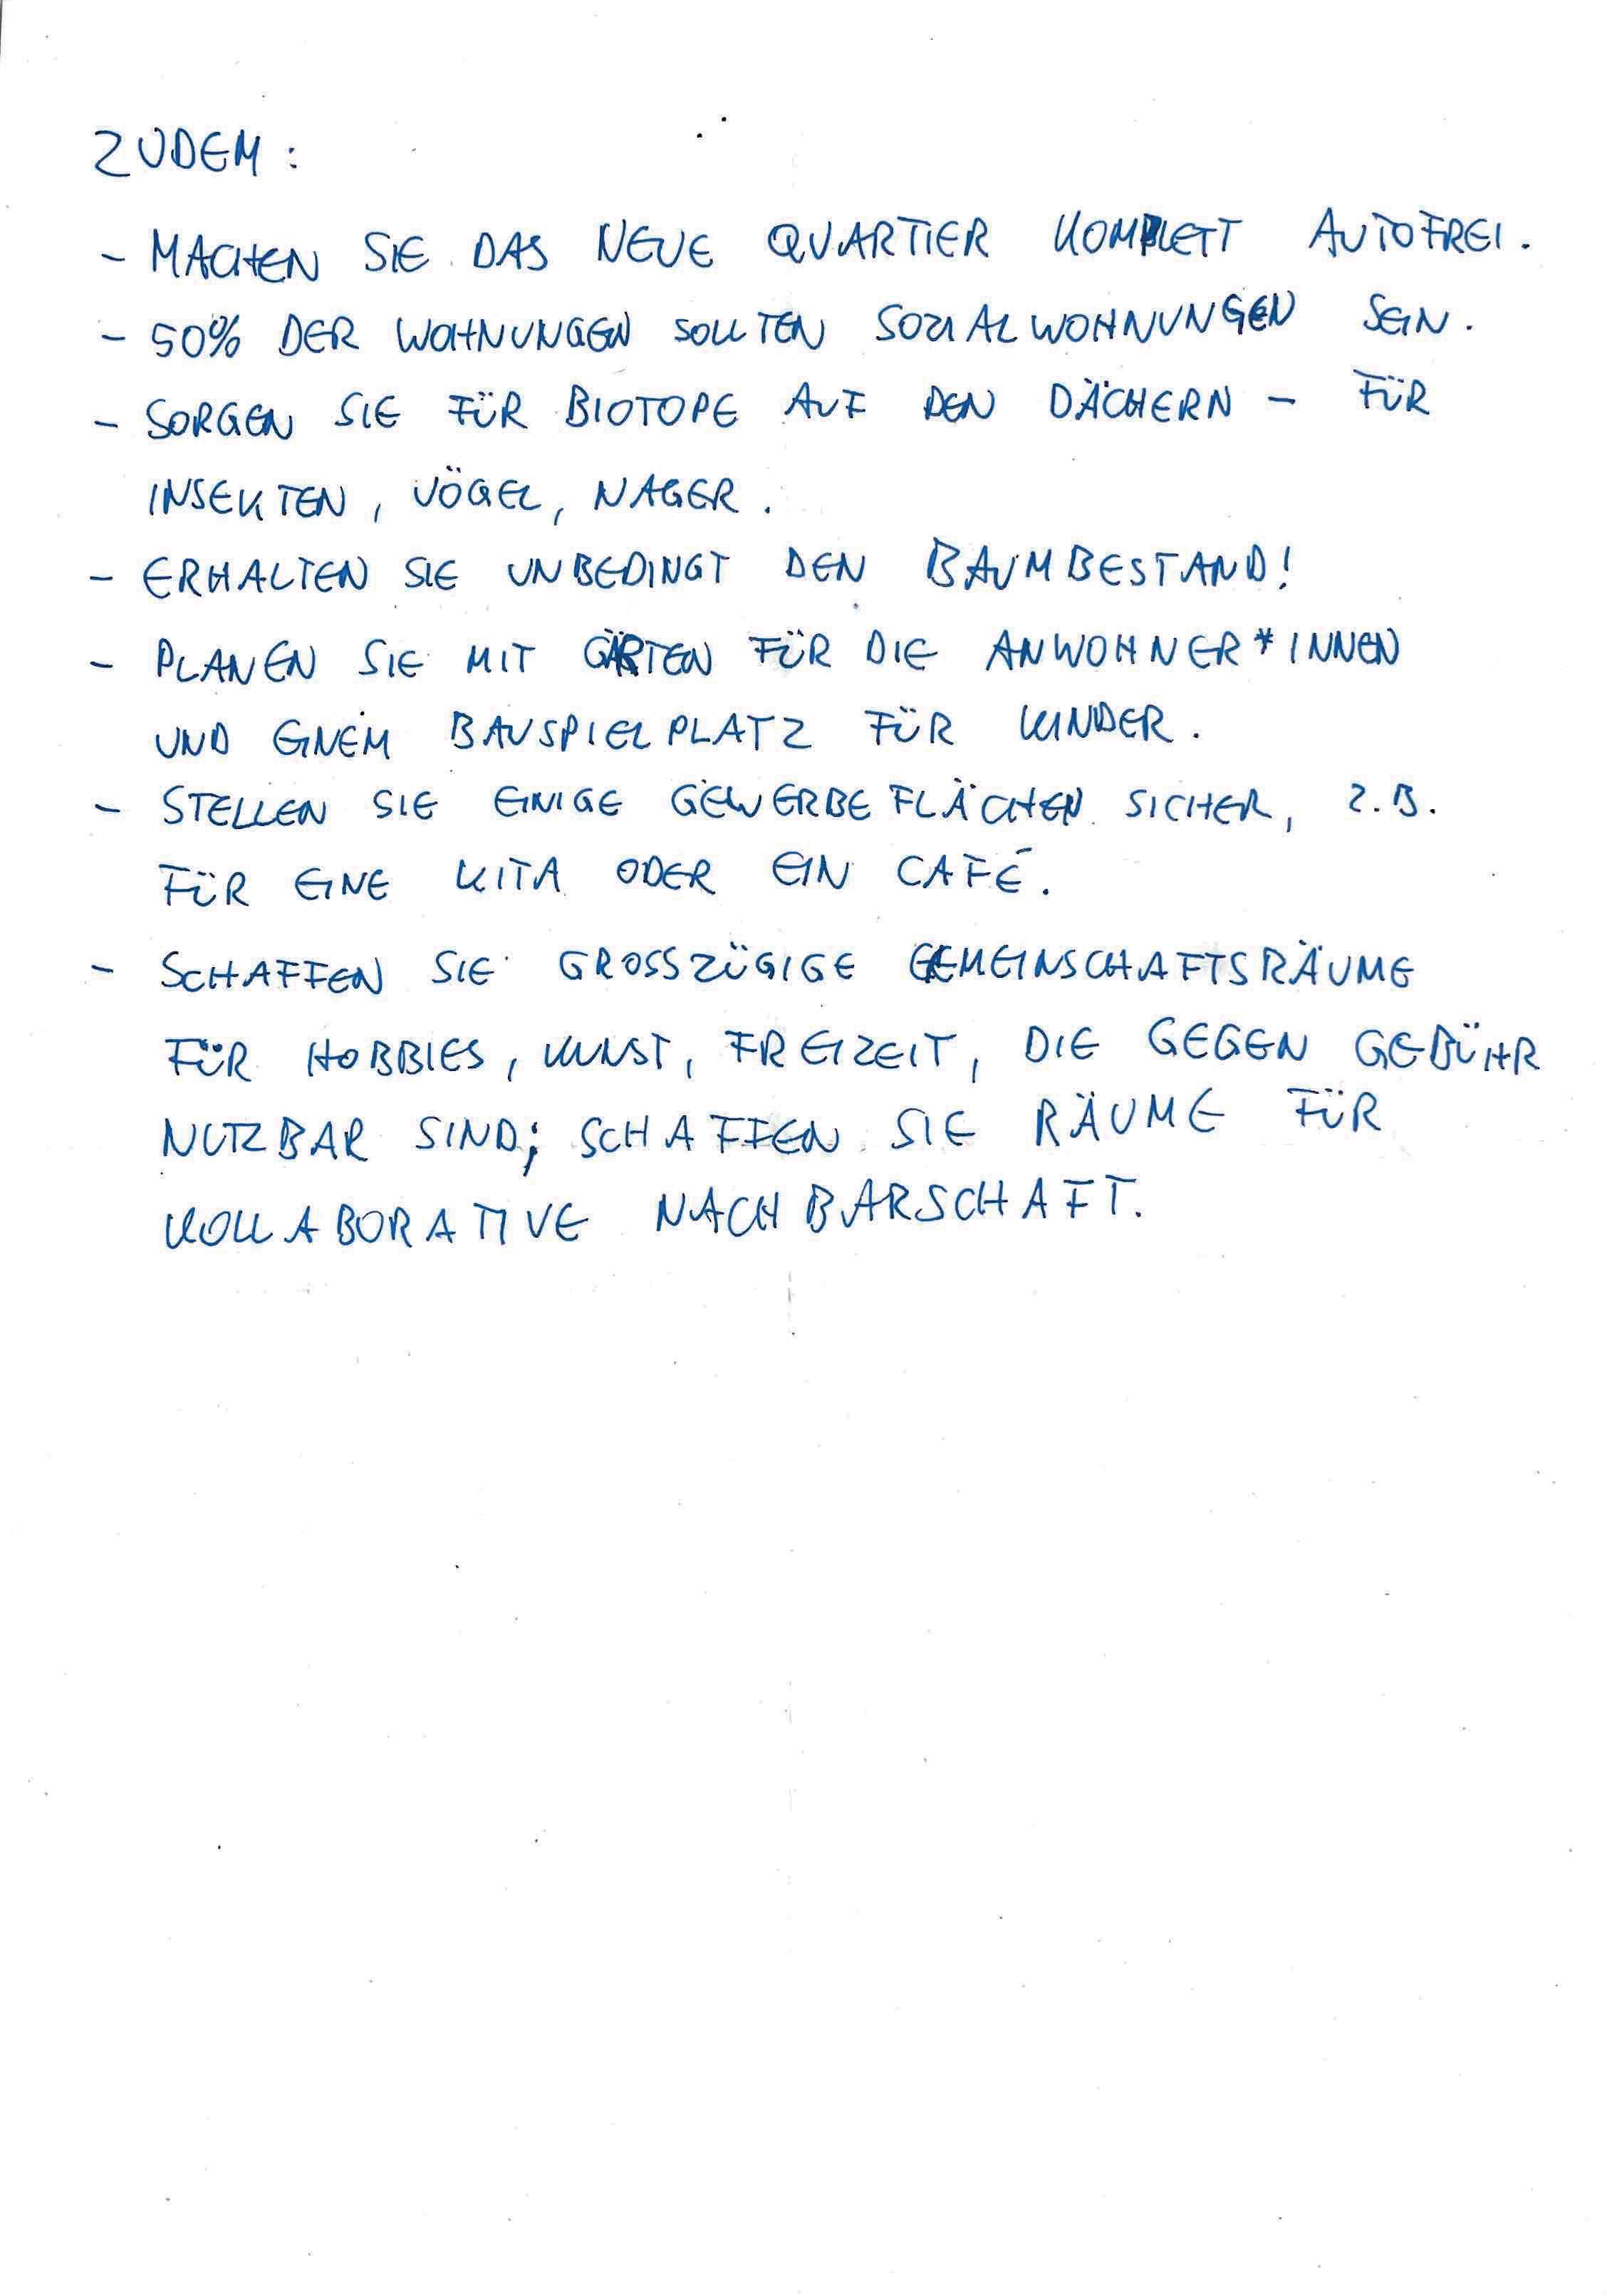 ZUDEM:
- MACHEN SIE DAS NEUE QUARTIER KOMPLETT AUTOFREI.
- 50% DER WOHNUNGEN SOLLTEN SOZIALWOHNUNGEN SEIN.
- SORGEN SIE FÜR BIOTOPE AUF DEN DÄCHERN – FÜR
INSEKTEN, VÖGEL, NAGER.
- ERHALTEN SIE UNBEDINGT DEN BAUMBESTAND!
- PLANEN SIE MIT GÄRTEN FÜR DIE ANWOHNER*INNEN
UND EINEM BAUSPIELPLATZ FÜR KINDER.
- STELLEN SIE EINIGE GEWERBEFLÄCHEN SICHER, Z.B.
FÜR EINE KITA ODER EIN CAFÉ.
- SCHAFFEN SIE GROSSZÜGIGE GEMEINSCHAFTSRÄUME
FÜR HOBBIES, KUNST, FREIZEIT, DIE GEGEN GEBÜHR
NUTZBAR SIND; SCHAFFEN SIE RÄUME FÜR
KOLLABORATIVE NACHBARSCHAFT.